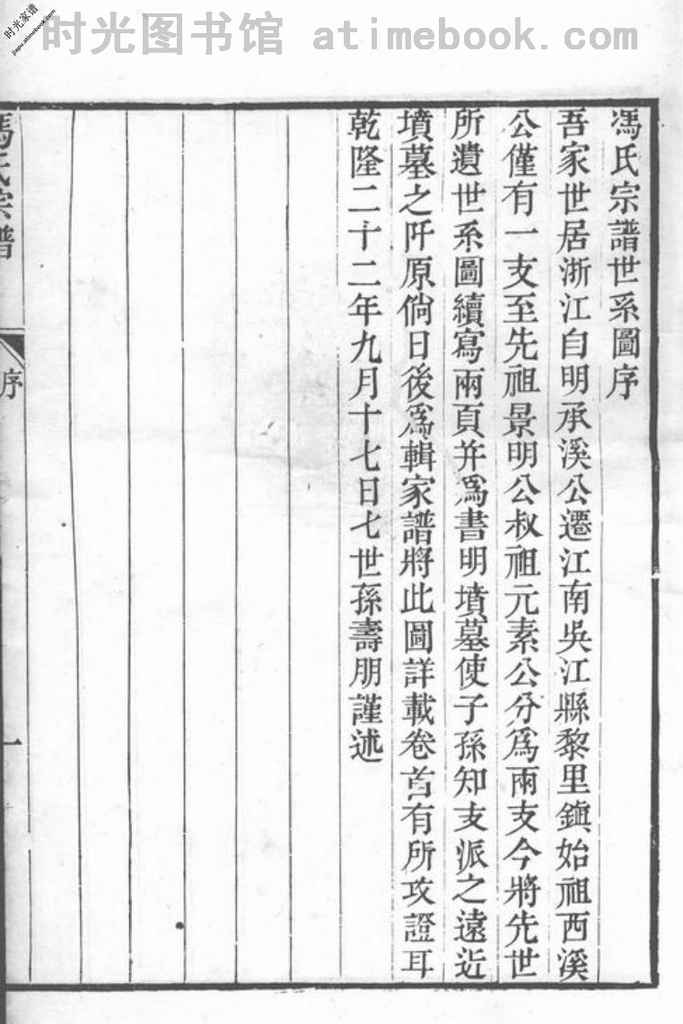 时光图书馆 atimebook.com
时光家谱
jiapu.atimebook.com
馮氏宗譜世系圖序
吾家世居浙江自明承溪公遷江南吳江縣黎里鎮始祖西溪
公僅有一支至先祖景明公叔祖元素公分爲兩支今將先世
所遺世系圖續寫兩頁并爲書明墳墓使子孫知支派之遠近
墳墓之阡原倘日後爲輯家譜將此圖詳載卷首有所攷證耳
乾隆二十二年九月十七日七世孫壽朋謹述
馮氏宗譜
序
一